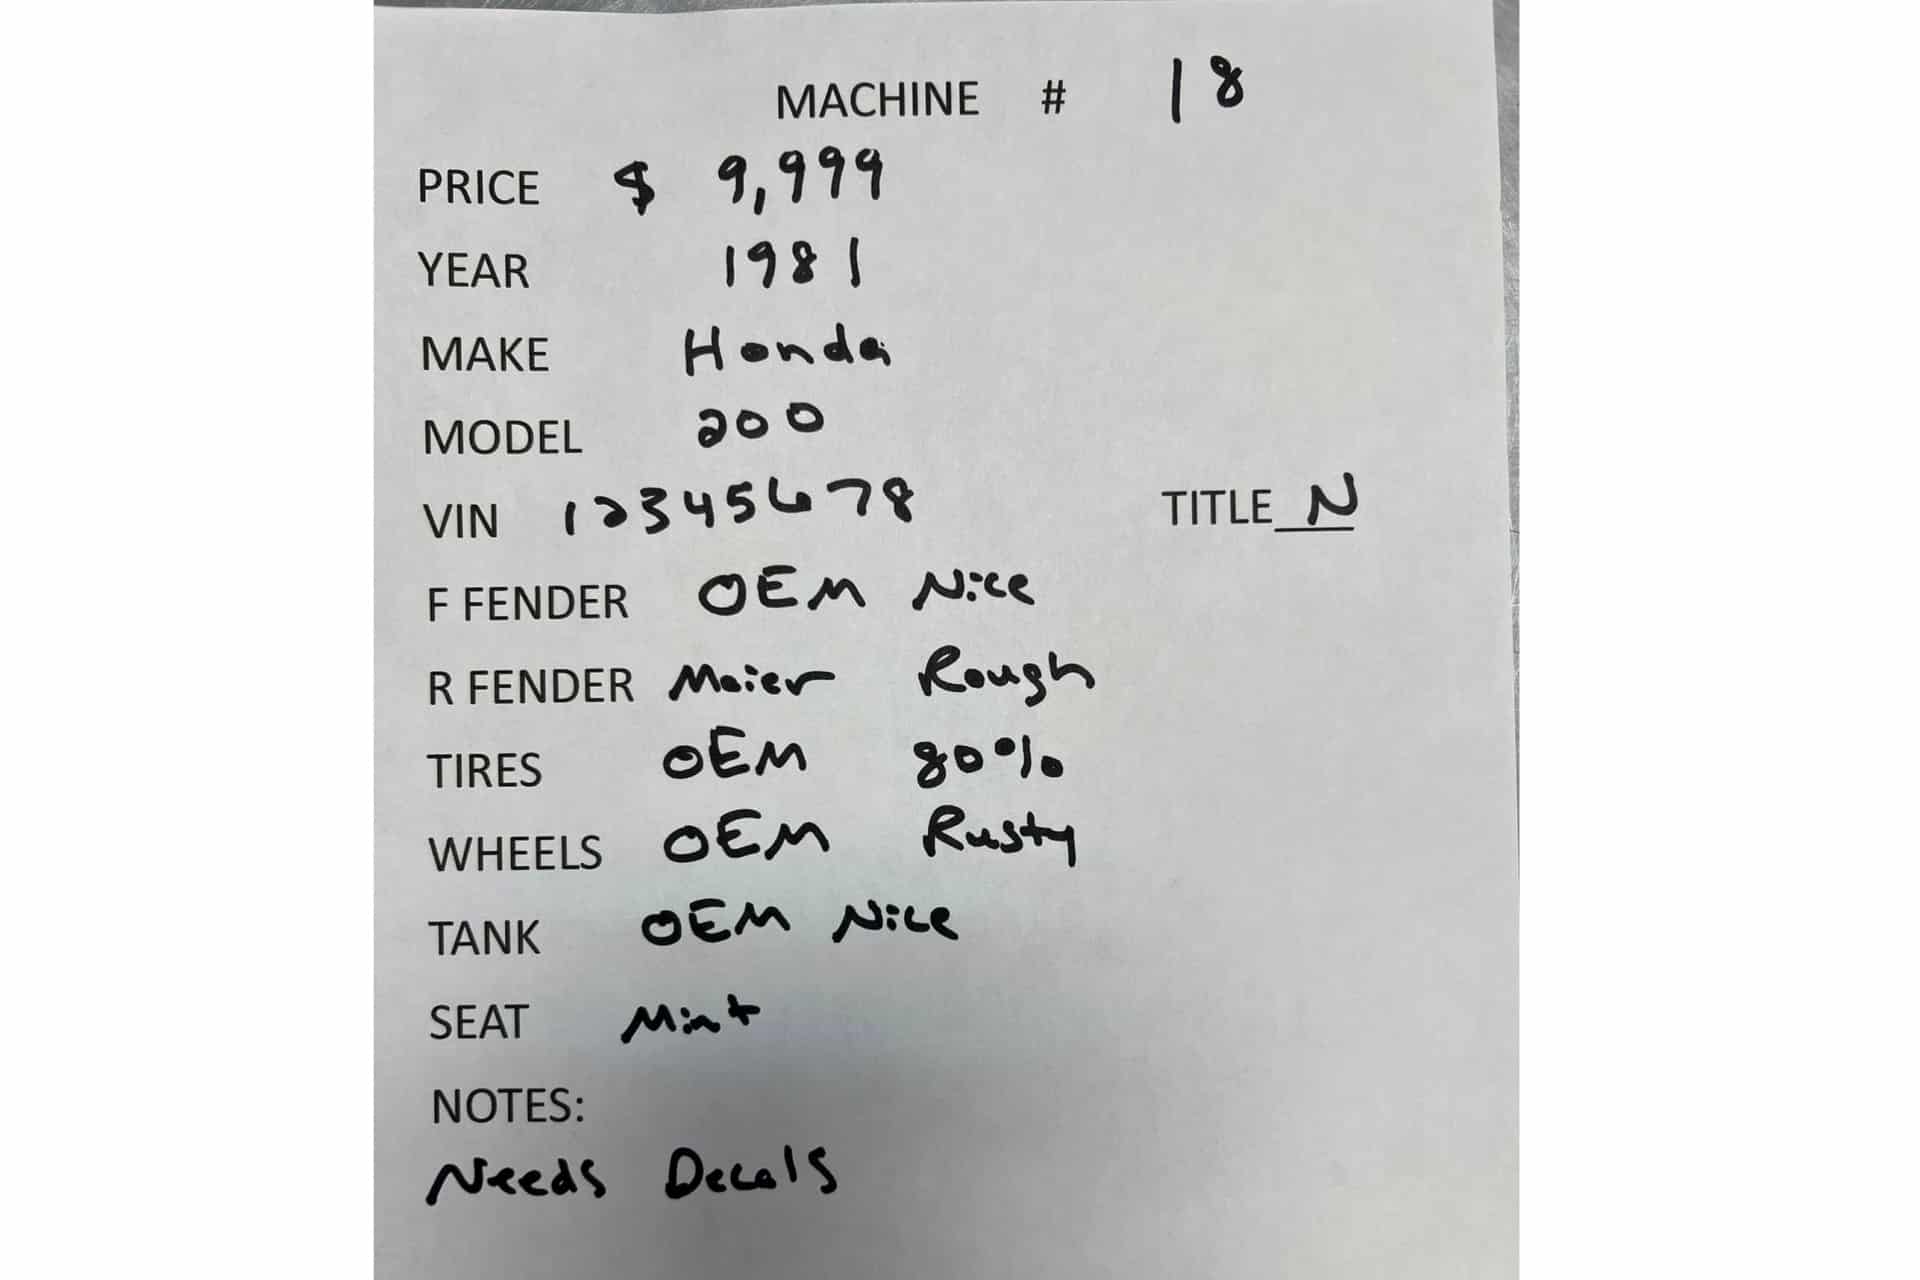 MACHINE # 18
PRICE $ 9,999
YEAR 1981
MAKE Honda
MODEL 200
VIN 12345678 TITLE N
F FENDER OEM Nice
R FENDER Maier Rough
TIRES OEM 80%
WHEELS OEM Rusty
TANK OEM Nice
SEAT Mint
NOTES:
Needs Decals